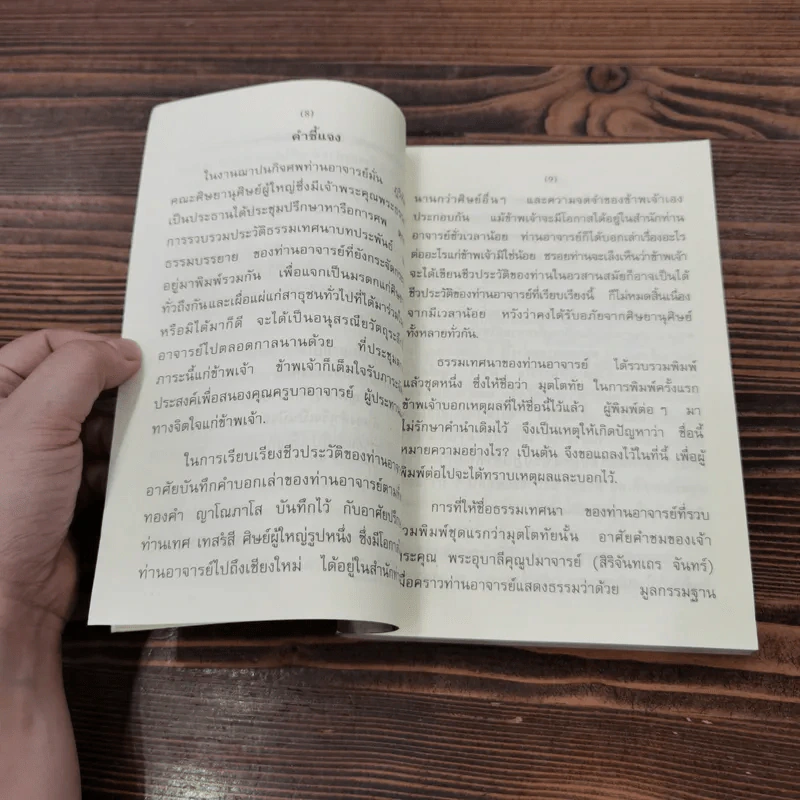 (8)
คำชี้แจง
ในงานฌาปนกิจศพท่านอาจารย์มั่น
คณะศิษยานุศิษย์ผู้ใหญ่ซึ่งมีเจ้าพระคุณพระ
เป็นประธานได้ประชุมปรึกษาหารือการศพ
การรวบรวมประวัติธรรมเทศนาบทประพันธ์
ธรรมบรรยาย ของท่านอาจารย์ที่ยังกระจัด
อยู่มาพิมพ์รวมกัน เพื่อแจกเป็นมรดกแก่
ทั่วถึงกันและเผื่อแผ่แก่สาธุชนทั่วไปที่ได้มาร่วม
หรือมิได้มาก็ดี จะได้เป็นอนุสรณียวัตถุ
อาจารย์ไปตลอดกาลนานด้วย ที่ประชุม
ภาระนี้แก่ข้าพเจ้า ข้าพเจ้าก็เต็มใจรับภาระ
ประสงค์เพื่อสนองคุณครูบาอาจารย์ ผู้ประ
ทางจิตใจแก่ข้าพเจ้า.
ในการเรียบเรียงชีวประวัติของท่าน
อาศัยบันทึกคำบอกเล่าของท่านอาจารย์
ทองคำ ญาโณภาโส บันทึกไว้ กับอาศัย
ท่านเทศ เทสรํสี ศิษย์ผู้ใหญ่รูปหนึ่ง ซึ่งมี
ท่านอาจารย์ไปถึงเชียงใหม่ ได้อยู่ในสำนัก
(9)
นานกว่าศิษย์อื่นๆ และความจดจำของข้าพเจ้าเอง
ประกอบกัน แม้ข้าพเจ้าจะมีโอกาสได้อยู่ในสำนักท่าน
อาจารย์ชั่วเวลาน้อย ท่านอาจารย์ก็ได้บอกเล่าเรื่องอะไร
ต่ออะไรแก่ข้าพเจ้ามิใช่น้อย ชรอยท่านจะเล็งเห็นว่าข้าพเจ้า
จะได้เขียนชีวประวัติของท่านในอวสานสมัยก็อาจเป็นได้
ชีวประวัติของท่านอาจารย์ที่เรียบเรียงนี้ ก็ไม่หมดสิ้นเนื่อง
จากมีเวลาน้อย หวังว่าคงได้รับอภัยจากศิษยานุศิษย์
ทั้งหลายทั่วกัน.
ธรรมเทศนาของท่านอาจารย์ ได้รวบรวมพิมพ์
แล้วชุดหนึ่ง ซึ่งให้ชื่อว่า มุตโตทัย ในการพิมพ์ครั้งแรก
ข้าพเจ้าบอกเหตุผลที่ให้ชื่อนี้ไว้แล้ว ผู้พิมพ์ต่อๆ มา
ไม่รักษาคำนำเดิมไว้ จึงเป็นเหตุให้เกิดปัญหาว่า ชื่อนี้
หมายความอย่างไร? เป็นต้น จึงขอแถลงไว้ในที่นี้ เพื่อผู้
พิมพ์ต่อไปจะได้ทราบเหตุผลและบอกไว้.
การที่ให้ชื่อธรรมเทศนา ของท่านอาจารย์ที่รวบ
รวมพิมพ์ชุดแรกว่ามุตโตทัยนั้น อาศัยคำชมของเจ้า
ระคุณ พระอุบาลีคุณูปมาจารย์ (สิริจันทเถร จันทร์)
มื่อคราวท่านอาจารย์แสดงธรรมว่าด้วย มูลกรรมฐาน